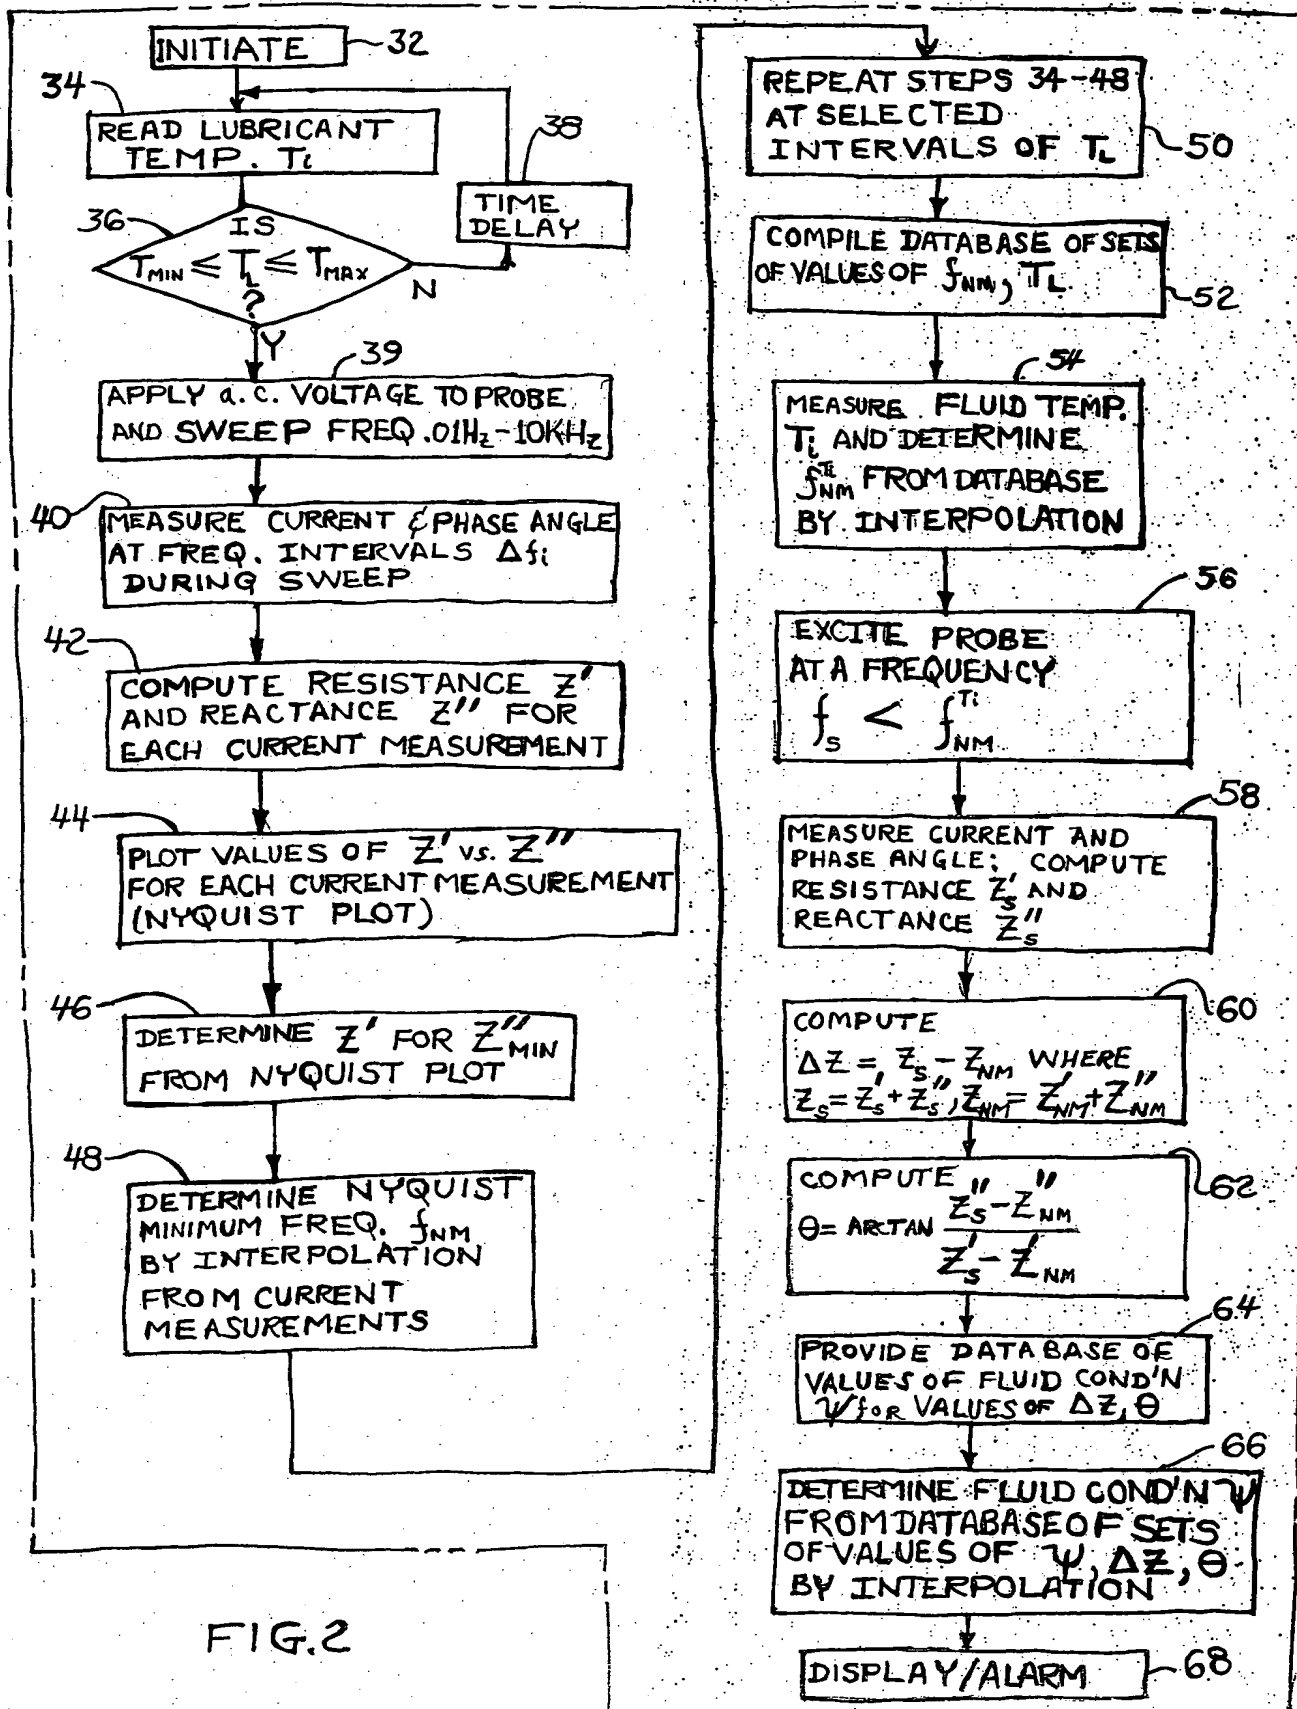 INITIATE
32
34
READ LUBRICANT
TEMP. Ti
38
TIME
DELAY
36
IS
TMIN ≤ TL ≤ TMAX
?
N
Y
39
APPLY a.c. VOLTAGE TO PROBE
AND SWEEP FREQ .01Hz-10KHz
40
MEASURE CURRENT & PHASE ANGLE
AT FREQ. INTERVALS Δfi
DURING SWEEP
42
COMPUTE RESISTANCE Z'
AND REACTANCE Z'' FOR
EACH CURRENT MEASUREMENT
44
PLOT VALUES OF Z' vs. Z''
FOR EACH CURRENT MEASUREMENT
(NYQUIST PLOT)
46
DETERMINE Z' FOR Z''MIN
FROM NYQUIST PLOT
48
DETERMINE NYQUIST
MINIMUM FREQ. fNM
BY INTERPOLATION
FROM CURRENT
MEASUREMENTS
REPEAT STEPS 34-48
AT SELECTED
INTERVALS OF TL
50
COMPILE DATABASE OF SETS
OF VALUES OF fNM, TL
52
54
MEASURE FLUID TEMP.
Ti AND DETERMINE
fNM^Ti FROM DATABASE
BY INTERPOLATION
56
EXCITE PROBE
AT A FREQUENCY
fs < fNM^Ti
58
MEASURE CURRENT AND
PHASE ANGLE; COMPUTE
RESISTANCE Zs' AND
REACTANCE Zs''
60
COMPUTE
ΔZ = Zs - ZNM WHERE
Zs = Zs' + Zs'', ZNM = Z'NM + Z''NM
62
COMPUTE
Zs'' - Z''NM
θ = ARCTAN
Zs' - Z'NM
64
PROVIDE DATABASE OF
VALUES OF FLUID COND'N
Ψ for VALUES OF ΔZ, θ
66
DETERMINE FLUID COND'N Ψ
FROM DATABASE OF SETS
OF VALUES OF Ψ, ΔZ, θ
BY INTERPOLATION
DISPLAY/ALARM
68
FIG.2